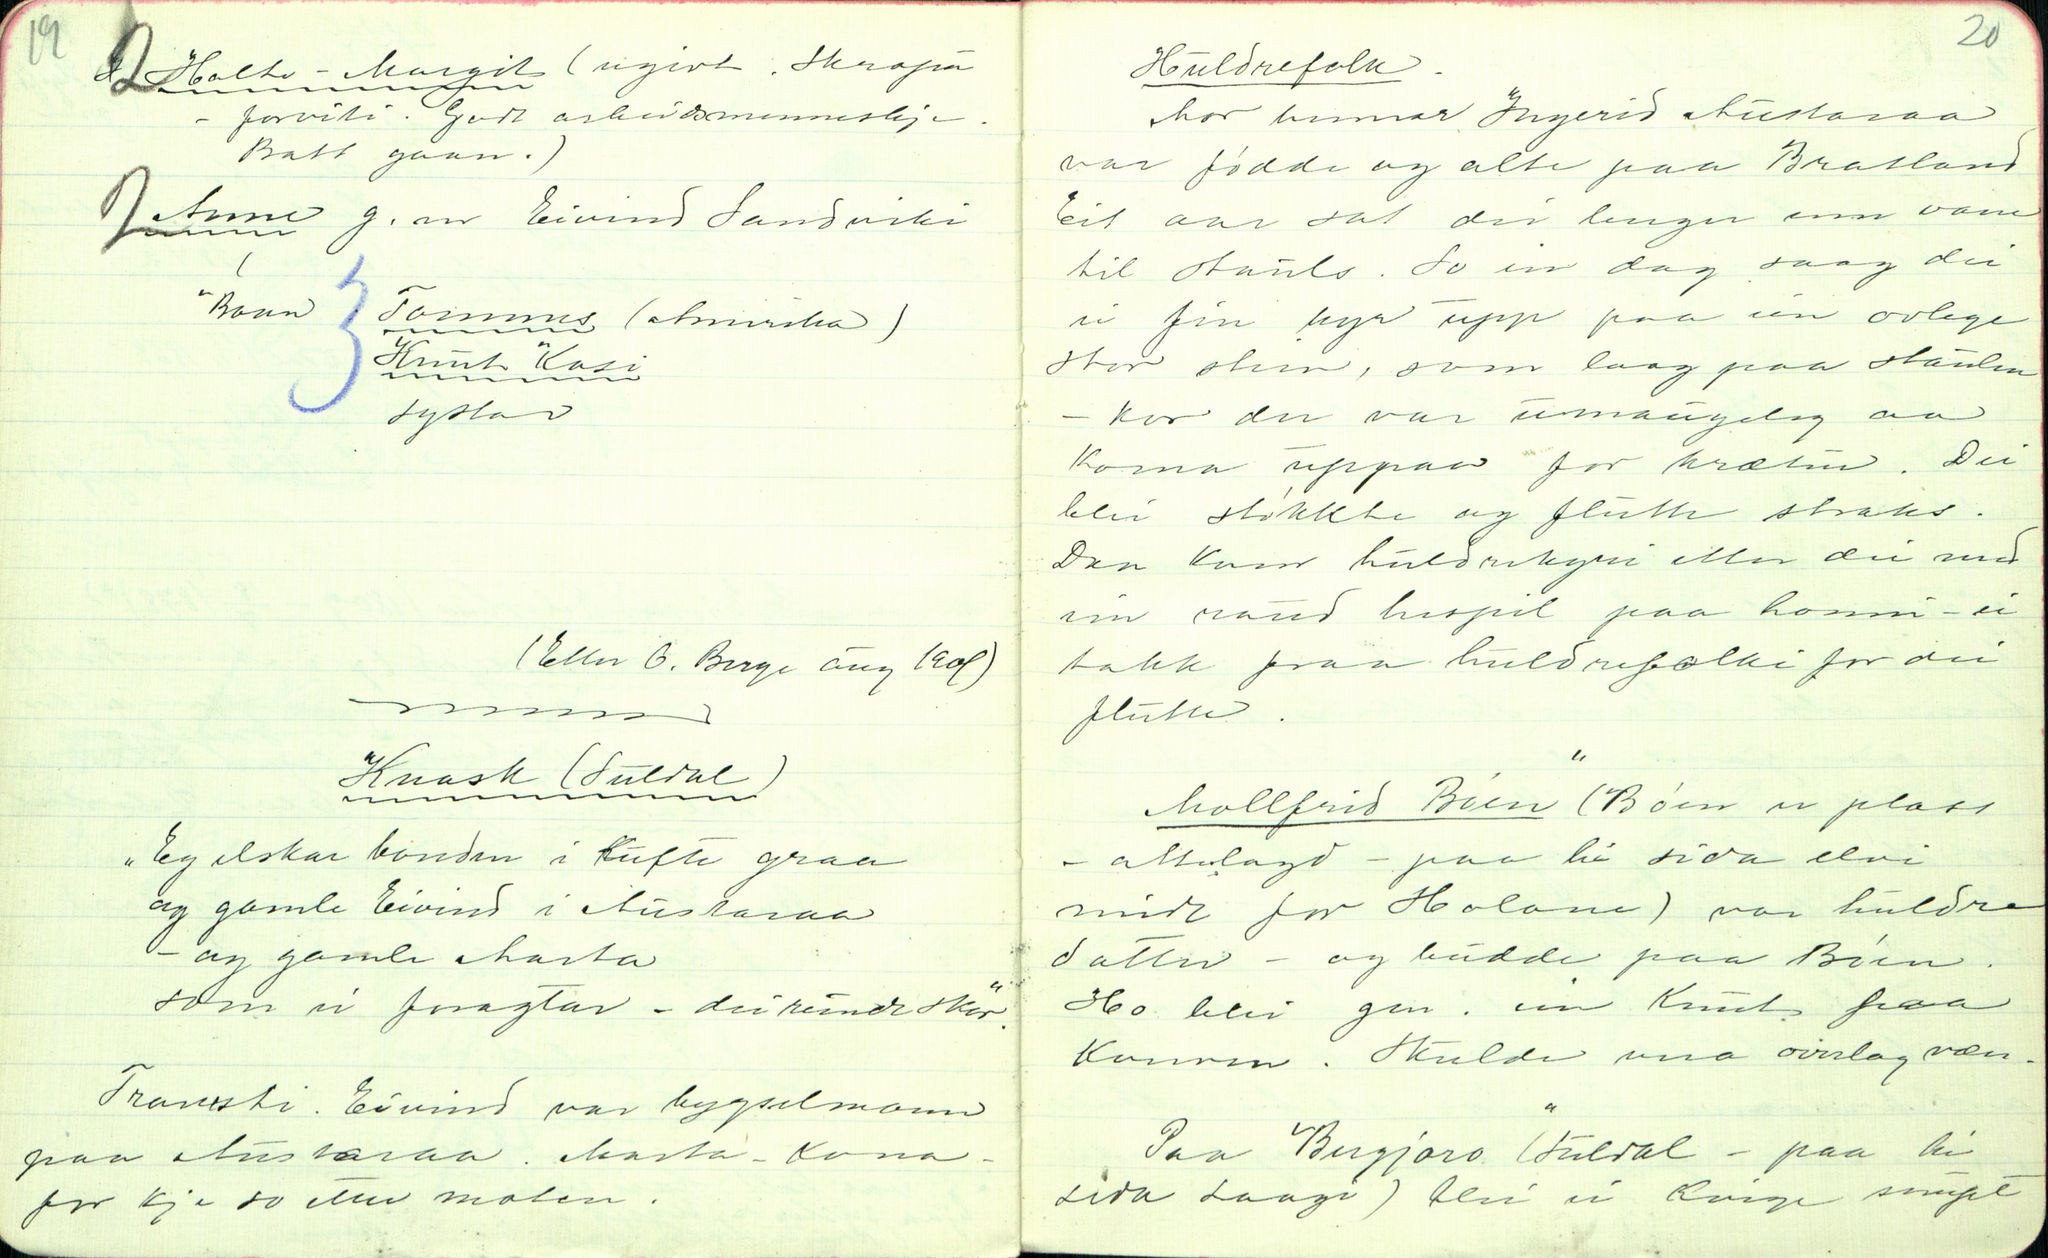 19
2 Holte-Margit (ugivt. Skrapa
- forviti. Godt arbeidsmenneskje.
Batt gaan.)
2 Anne g. m Eivind Sandviki
"Boun 3 Tommus (Amerika)
"Knut "Kasi
syster
(Etter O. Berge aug 19
"Knask (Suldal)
"Eg elskar bonden i kufte graa
og gamle Eivind i Austaraa
- og gamle Marta
som ei foragtar - dei rundt skor."
Eivind var bygselmann
paa Austaraa. Marta - kona -
for kje so etter maten.
20
Huldrefolk.
Mor hennar "Ingerid Austaraa
var fødde og alte paa Bratland
Eit aar sat dei lenger enn vane
til stauls. So ein dag saag dei
ei fin kyr upp paa ein ovlege
stor stein, som laag paa staulen
- kor der var umaugeleg aa
koma uppaa for krætur. Dei
blei støkkte og flutte straks.
Daa kom huldrekyri etter dei med
ein raud hespil paa horni - ei
takk fraa huldrefolki for dei
flutte.
"
Mollfrid Bøen (Bøen er plass
- attelagd - paa hi sida elvi
midt for Holane) var huldre
datter - og budde paa Bøen.
Ho blei gm. ein Knut paa
Skulde vera overlag væn.
"
Paa "Bergjoro (Suldal - paa hi
sida Laagi) blei ei kvige